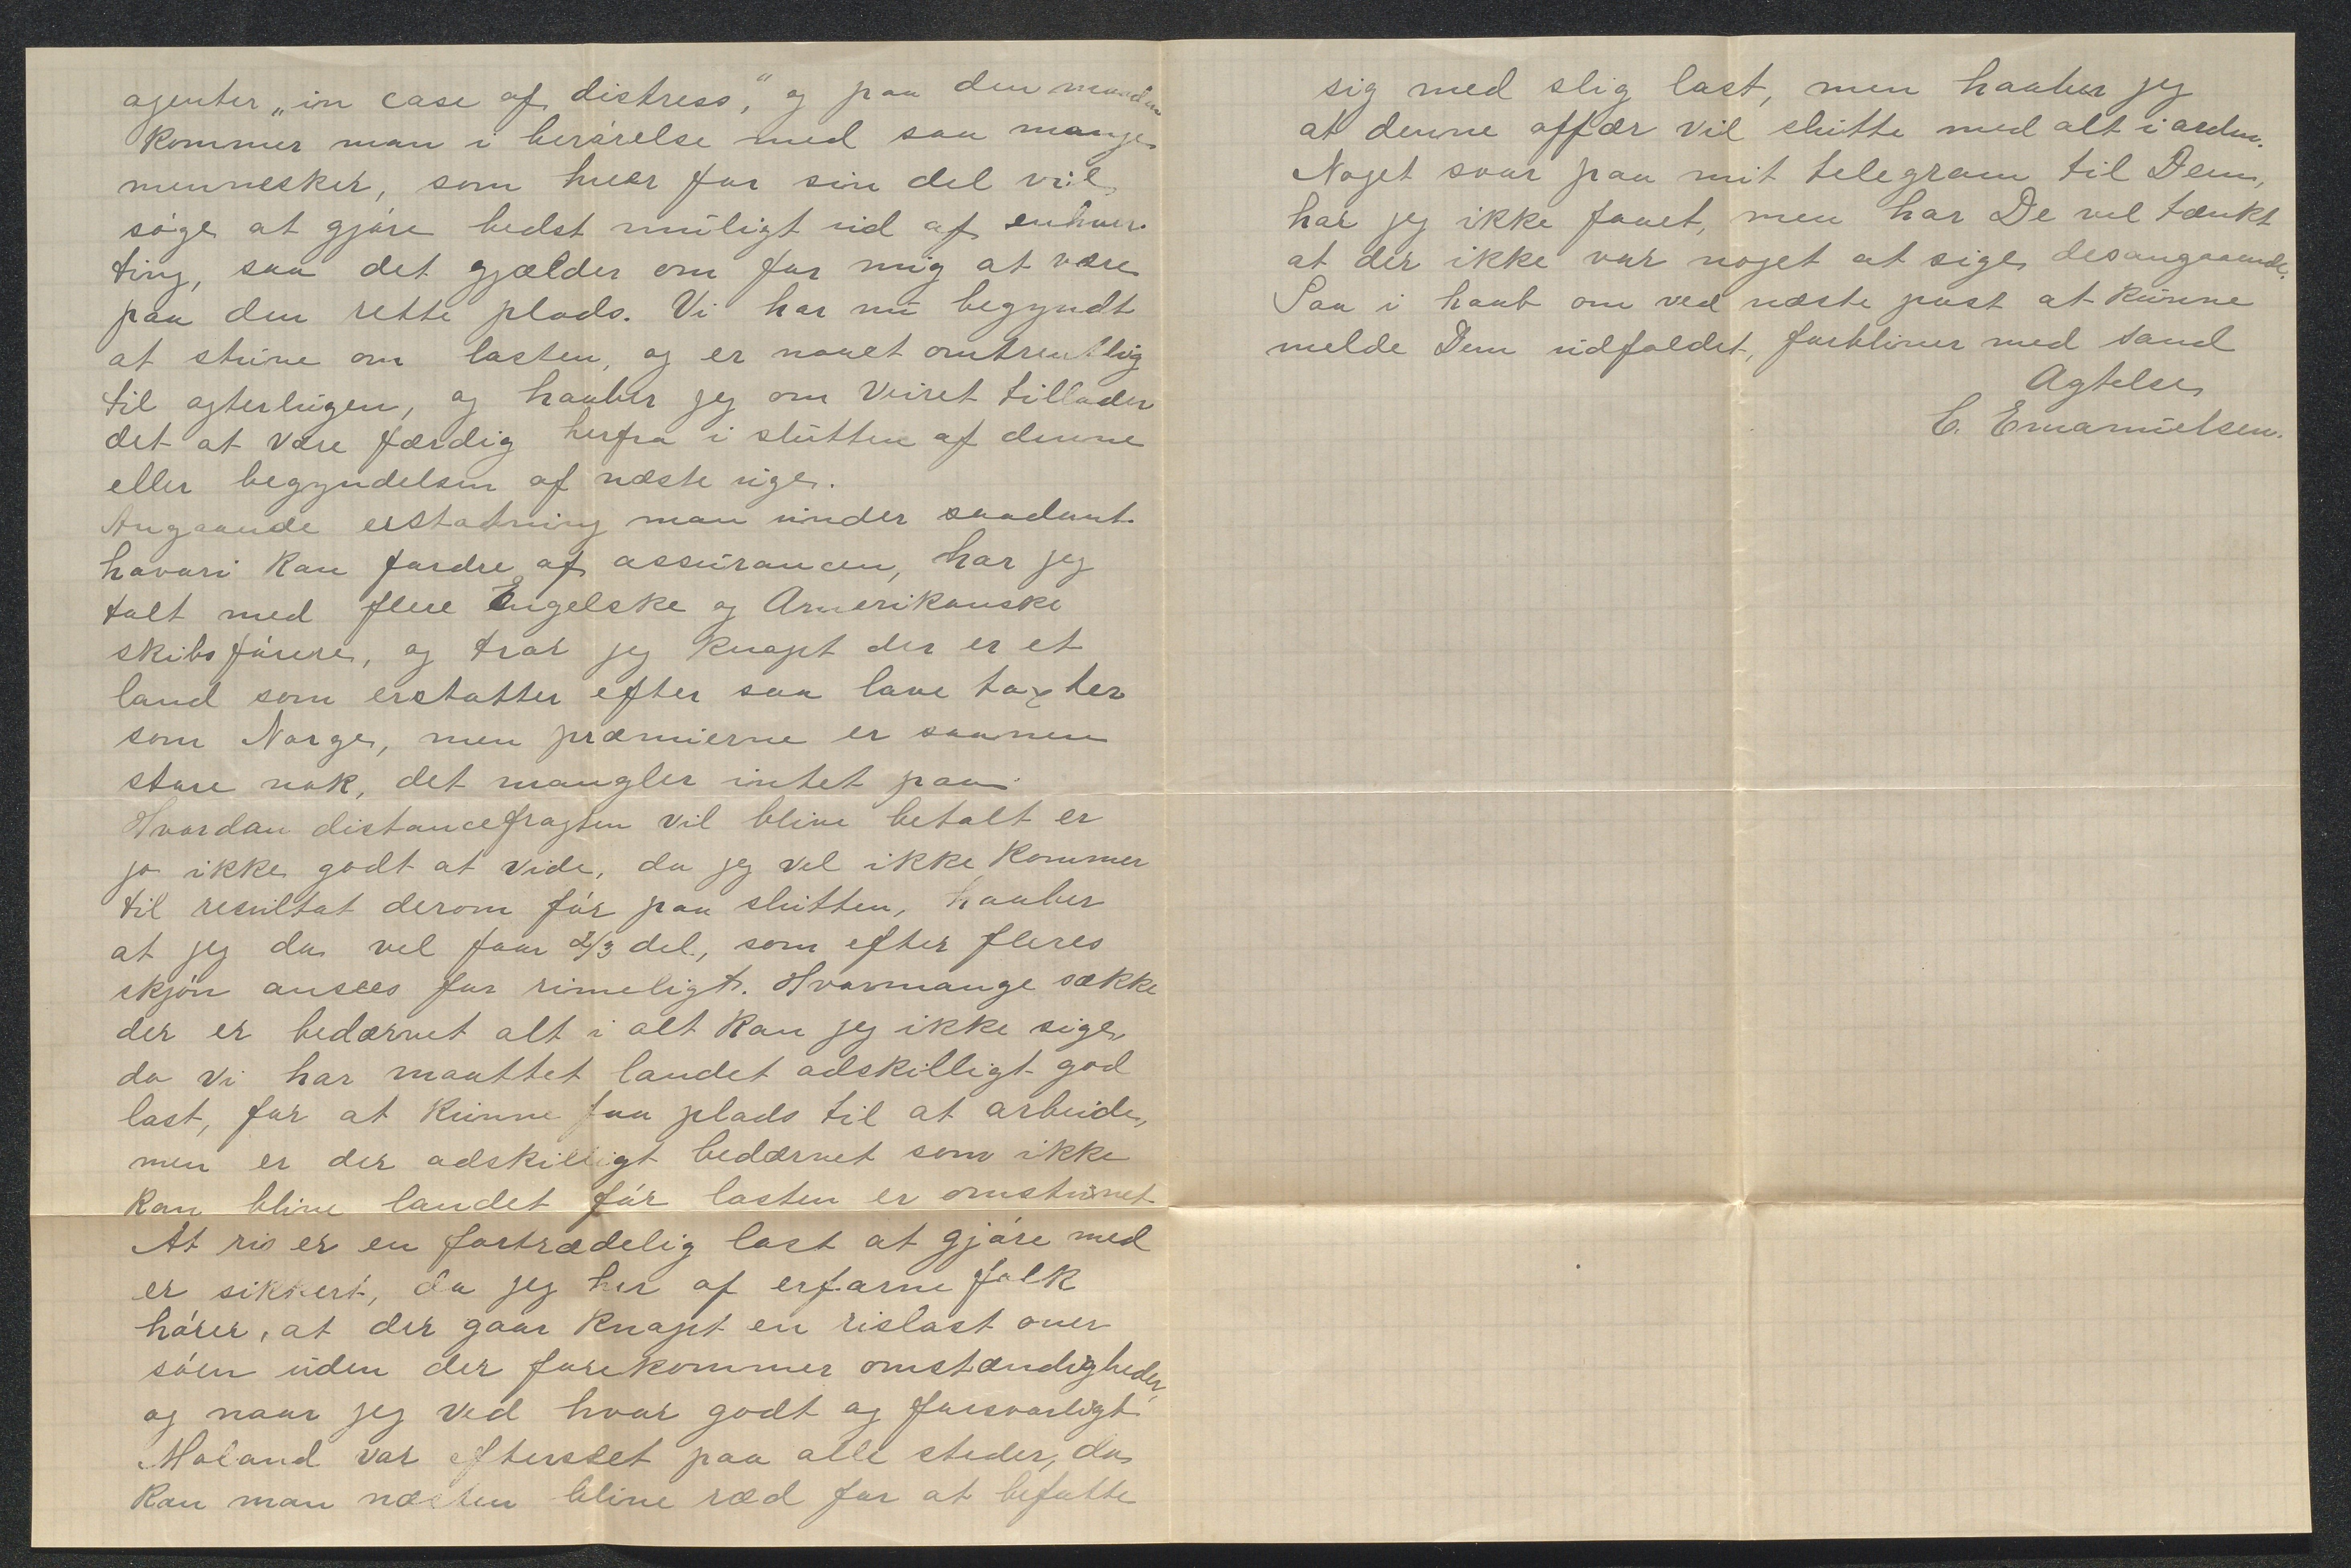 agenter „in case of distress," og paa den maaden
kommer man i berórelse med saa mange
mennesker, som hver for sin del vil
sóge at gjóre bedst muligt ud af enhver
ting, saa det gjælder om for mig at være
paa den rette plads. Vi har nu begyndt
at stuve om lasten, og er naaet omtrentlig
til agterlugen, og haaber jeg om veiret tillader
det at være færdig herfra i slutten af denne
eller begyndelsen af næste uge.
Angaaende erstatning man under saadant
havari kan fordre af assurancen, har jeg
talt med flere Engelske og Amerikanske
skibsfórere, og tror jeg knapt der er et
land som erstatter efter saa lave taxter
som Norge, men præmierne er saamen
store nok, det mangler intet paa.
Hvordan distancefragten vil blive betalt er
jo ikke godt at vide, da jeg vel ikke kommer
til resultat derom fór paa slutten, haaber
at jeg da vel faar 2/3 del, som efter fleres
skjón ansees for rimeligt. Hvormange sække
der er bedærvet alt i alt kan jeg ikke sige,
da vi har maattet landet adskilligt god
last, for at kunne faa plads til at arbeide,
men er der adskilligt bedærvet som ikke
kan blive landet fór lasten er omstuvet
At ris er en fortrædelig last at gjóre med
er sikkert, da jeg her af erfarne folk
hórer, at der gaar knapt en rislast over
sóen uden der forekommer omstændigheder,
og naar jeg ved hvor godt og forsvarligt
Moland var efterseet paa alle steder, da
kan man næsten blive ræd for at befatte
sig med slig last, men haaber jeg
at denne affær vil slutte med alt i orden.
Noget svar paa mit telegram til Dem,
har jeg ikke faaet, men har De vel tænkt
at der ikke var noget at sige desangaaende.
Saa i haab om ved næste post at kunne
melde Dem udfaldet, forbliver med sand
Agtelse
C. Emanuelsen.